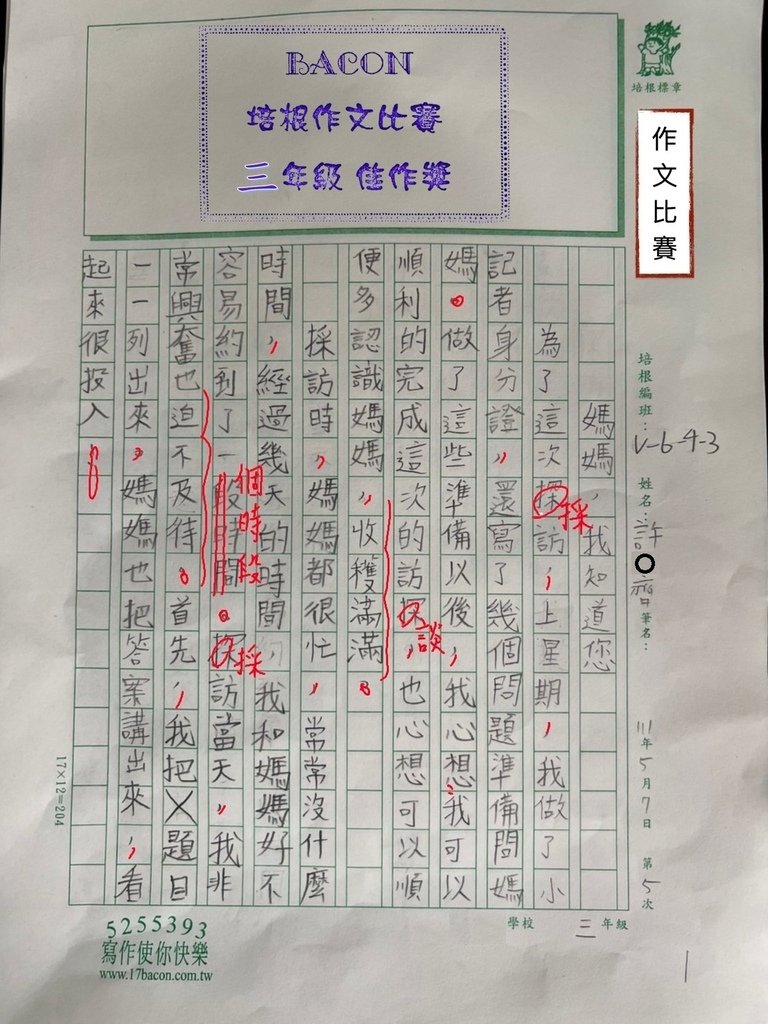 BACON
培根作文比賽
三年級 佳作獎
培根標章
作文比賽
培根編班：V-6-4-3
姓名：許〇
筆名：
111年5月7日 第5次
媽媽，我知道您
為了這次探訪，上星期，我做了小
記者身分證，還寫了幾個問題準備問媽
媽。做了這些準備以後，我心想：我可以
順利的完成這次的訪探，也心想可以順
便多認識媽媽，收穫滿滿。
採訪時，媽媽都很忙，常常沒什麼
時間，經過幾天的時間，我和媽媽好不
容易約到了一段時間。探訪當天，我非
常興奮也迫不及待。首先，我把題目
一一列出來，媽媽也把答案講出來，看
起來很投入
採
談
個時段
採
17×12=204
學校 三年級
5255393
寫作使你快樂
www.17bacon.com.tw
1